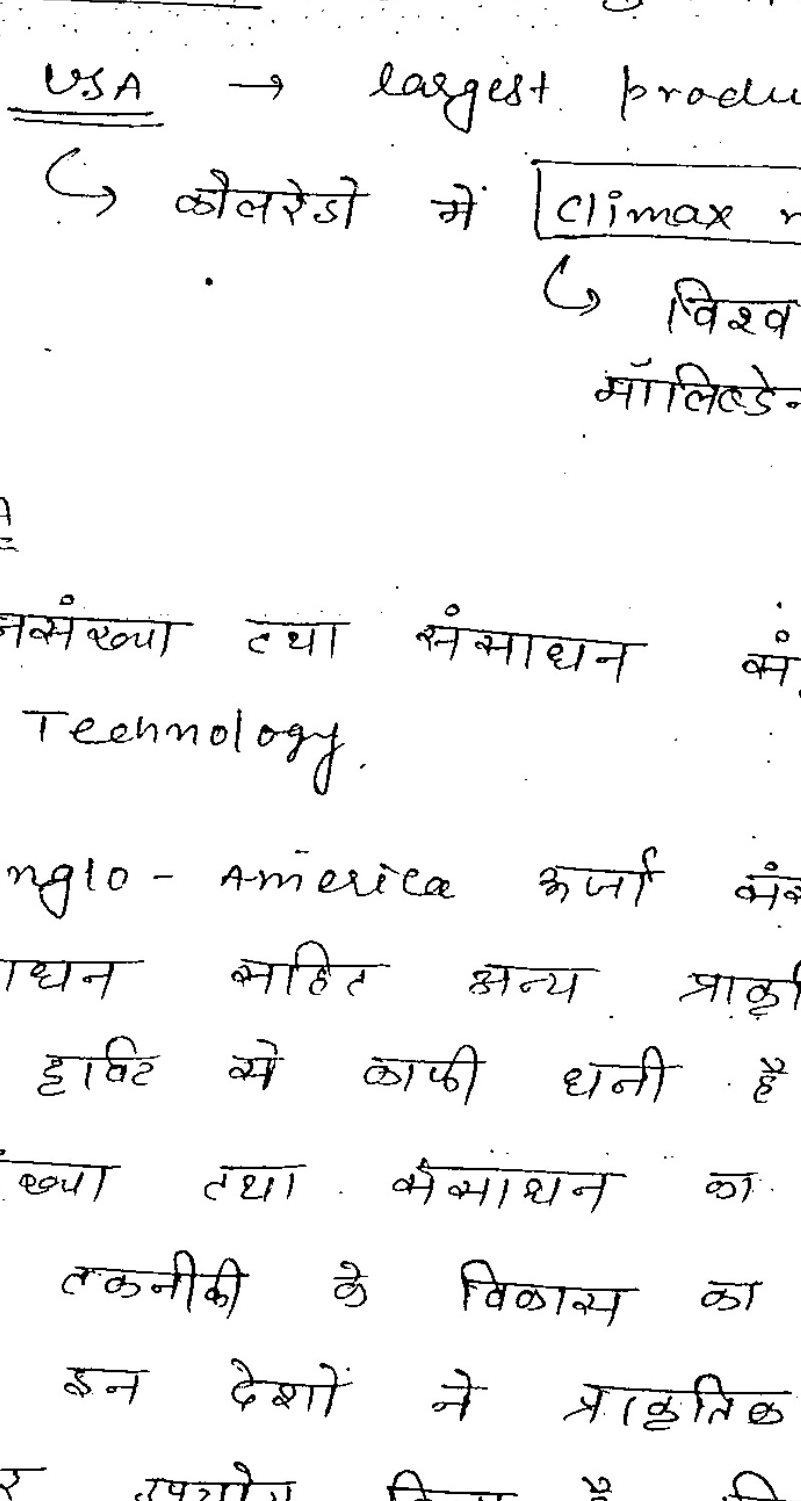 USA → largest produ
↳ कोलरेडो में Climax
↳ विश्व
मॉलिब्डे
नसंख्या तथा संसाधन सं
Technology.
nglo - America ऊर्जा संस
ाधन सहित अन्य प्राकृ
दृष्टि से काफी धनी है
ंख्या तथा संसाधन का
तकनीकी के विकास का
इन देशों ने प्राकृतिक
र उपयोग किया है